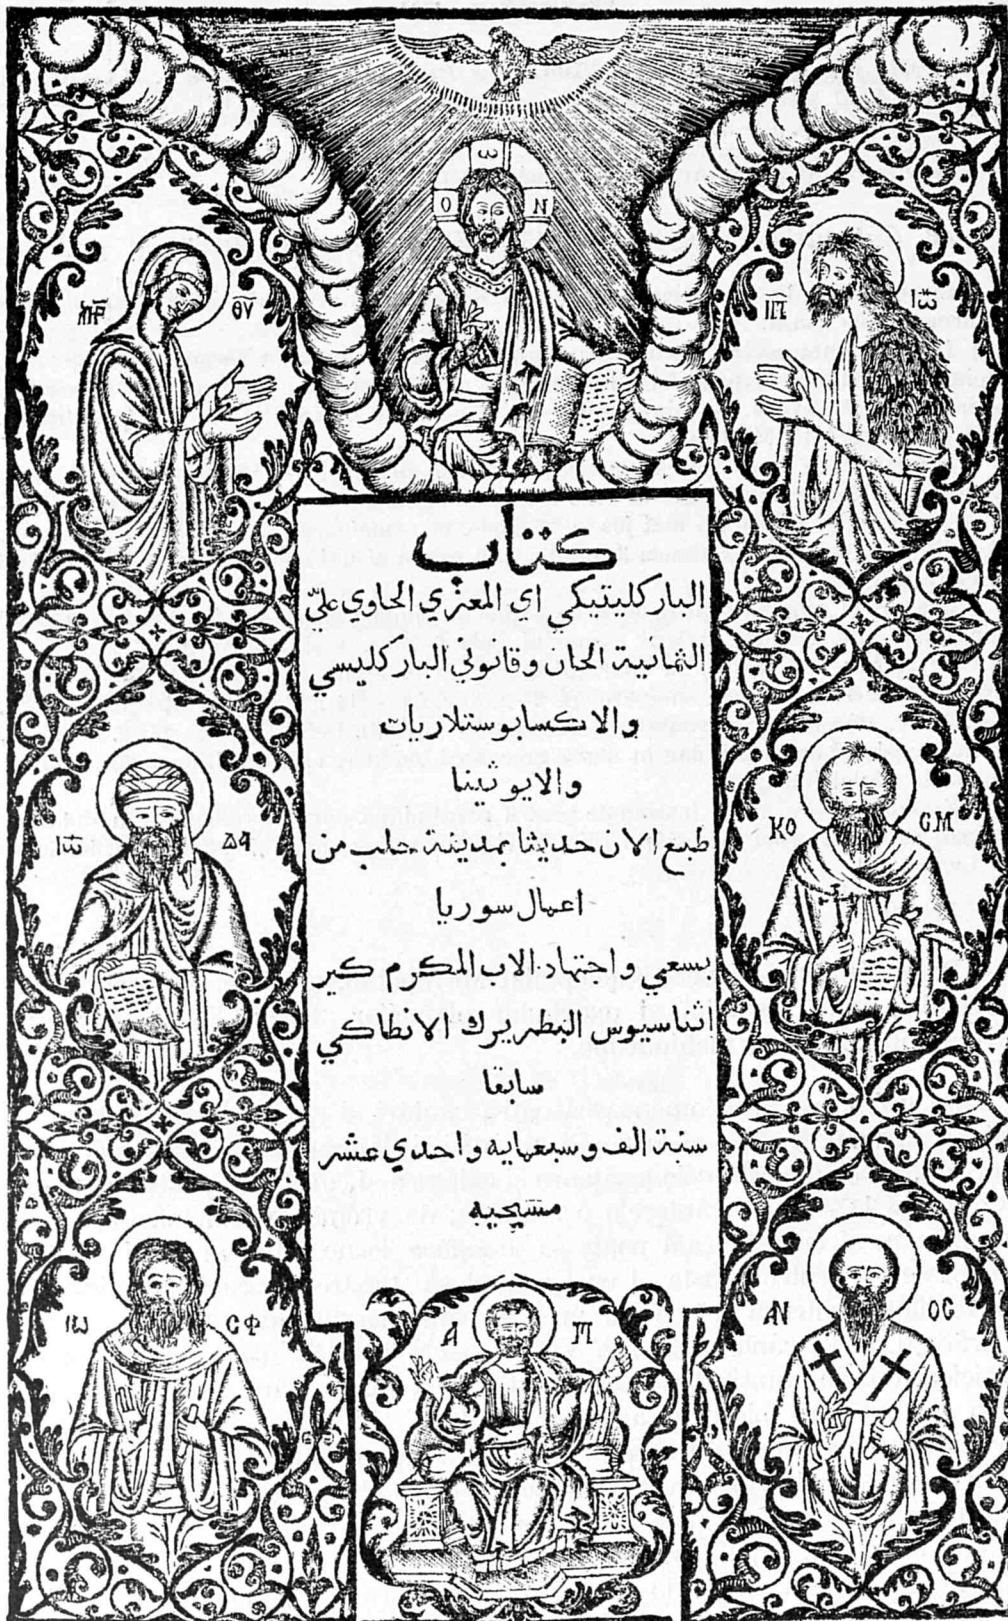 ѡ
О Н
МР ΘΥ
ІП Іѡ
كتاب
الباركليتيكي اي المعزي الحاوي علىّ
الثمانية الحان وقانوني الباركليسي
والاكسابوستلاريات
والايوثينا
طبع الان حديثا بمدينة حلب من
اعمال سوريا
بسعي واجتهاد الاب المكرم كير
اثناسيوس البطريرك الانطاكي
سابقا
سنة الف وسبعماية واحدي عشر
مسيحية
Іѡ ΔΑ
КО СМ
Іѡ СФ
А П
АN ОС